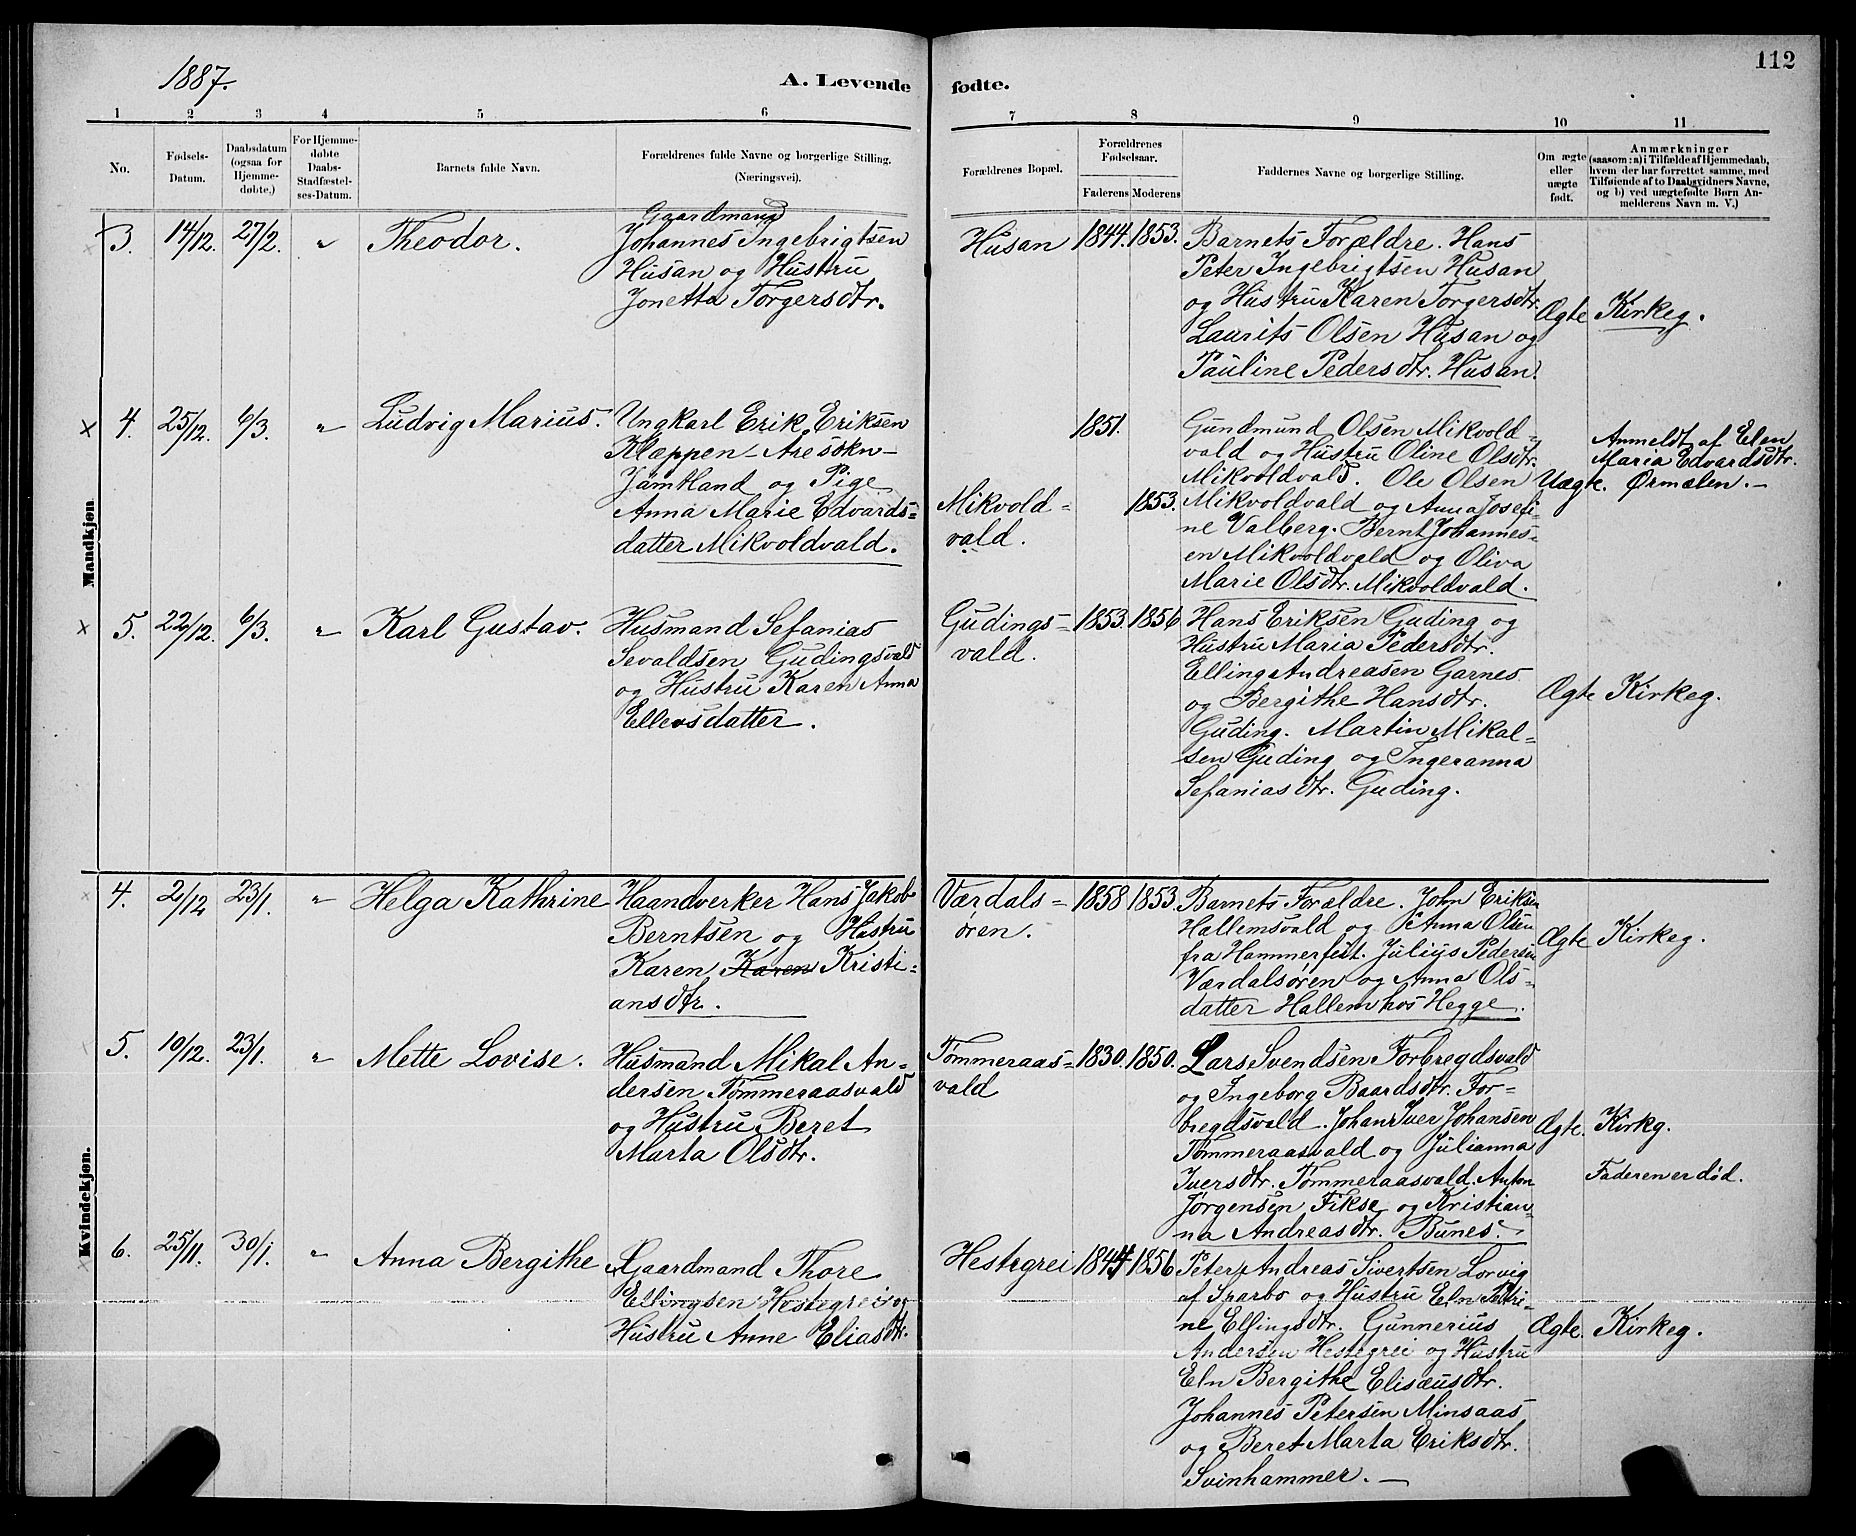 1887.
A. Levende
fødte.
112
1 2 3 4 5 6 7 8 9 10 11
No.
Fødsels-
Datum.
Daabsdatum
(ogsaa for
Hjemme-
døbte,)
For Hjemme-
døbte
Daabs-
Stadfæstel-
ses-Datum.
Barnets fulde Navn.
Forældrenes fulde Navne og borgerlige Stilling.
(Næringsvei).
Forældrenes Bopæl.
Forældrenes
Fødselsaar.
Faderens Moderens
Faddernes Navne og borgerlige Stilling.
Om ægte
eller
uægte
født.
Anmærkninger
(saasom: a) i Tilfælde af Hjemmedaab,
hvem der har forrettet samme, med
Tilføiende af to Daabsvidners Navne,
og b) ved uægtefødte Børn An-
melderens Navn m. V.)
Mandkjøn
3. 14/12. 27/2. " Theodor.
Gaardmand
Johannes Ingebrigtsen
Husan og Hustru
Jonetta Torgersdtr.
Husan 1844. 1853.
Barnets Forældre. Hans
Peter Ingebrigtsen Husan
og Hustru Karen Torgersdtr.
Laurits Olsen Husan og
Pauline Pedersdtr. Husan.
Ægte Kirkeg.
x 4. 25/12. 6/3. " Ludvig Marius.
Ungkarl Erik Eriksen
Klæppen - Åre sokn -
Jämtland og Pige
Anna Marie Edvards=
datter Mikvoldvald.
Mikvold=
vald.
1851.
1853.
Gundmund Olsen Mikvold=
vald og Hustru Oline Olsdtr.
Mikvoldvald. Ole Olsen
Mikvoldvald og Anna Josefi-
ne Valberg. Bernt Johannes-
en Mikvoldvald og Oliva
Marie Olsdtr. Mikvoldvald.
Uægte.
Anmeldt af Elen
Maria Edvardsdtr.
Ørmælen. -
x 5. 22/12. 6/3. " Karl Gustav.
Husmand Sefanias
Sevaldsen Gudingsvald
og Hustru Karen Anna
Ellevsdatter.
Gudings=
vald.
1853. 1856
Hans Eriksen Guding og
Hustru Maria Pedersdtr.
Elling Andreasen Garnes
og Bergithe Hansdtr.
Guding. Martin Mikal=
sen Guding og Ingeranna
Sefaniasdtr. Guding.
Ægte Kirkeg.
Kvindekjøn.
4. 2/12 23/1. " Helga Kathrine
Haandverker Hans Jakob
Berntsen og Hustru
Karen Karen Kristi=
ansdtr.
Værdals=
ören.
1858 1853.
Barnets Forældre. John Eriksen
Hallemsvald og Anna Olsen
fra Hammerfest. Julius Pedersen
Værdalsøren og Anna Ols=
datter Hallem hos Hegge.
Ægte Kirkeg.
5. 19/12. 23/1. " Mette Lovise.
Husmand Mikal An=
dersen Tømmeraasvald
og Hustru Beret
Marta Olsdtr.
Tømmeraas=
vald
1830. 1850.
Lars Svendsen Forbregdsvald
og Ingeborg Baardsdtr. For-
bregdsvald. Johan Iver Johansen
Tømmeraasvald og Julianna
Iversdtr. Tømmeraasvald. Anton
Jørgensen Fikse og Kristian-
na Andreasdtr. Bunes. -
Ægte. Kirkg.
Faderen er død.
6. 25/11. 30/1. " Anna Bergithe
Gaardmand Thore
Ellingsen Hestegrei og
Hustru Anne Eliasdtr.
Hestegrei 1844 1856
Peter Andreas Sivertsen Lorvig
af Sparbo og Hustru Eln Petri-
ne Ellingsdtr. Gunnerius
Andersen Hestegrei og Hustru
Eln Bergithe Elisæusdtr.
Johannes Petersen Minsaas
og Beret Marta Eriksdtr.
Svinhammer. -
Ægte. Kirkeg.